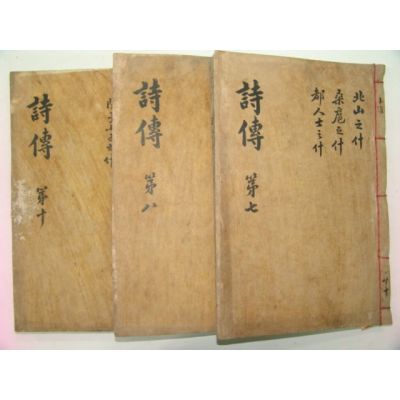 北山之什
桑扈之什
都人士之什
詩傳
第七
詩傳
第八
詩傳
第十